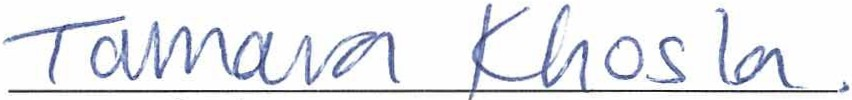 Tamara Khosla.